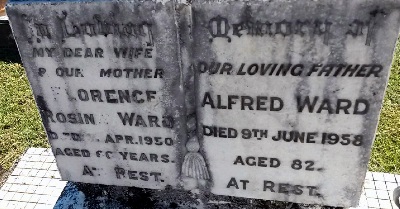 In Loving Memory of
MY DEAR WIFE
& OUR MOTHER
FLORENCE
ROSINA WARD
DIED APR. 1950
AGED YEARS.
AT REST.
OUR LOVING FATHER
ALFRED WARD
DIED 9TH JUNE 1958
AGED 82.
AT REST.